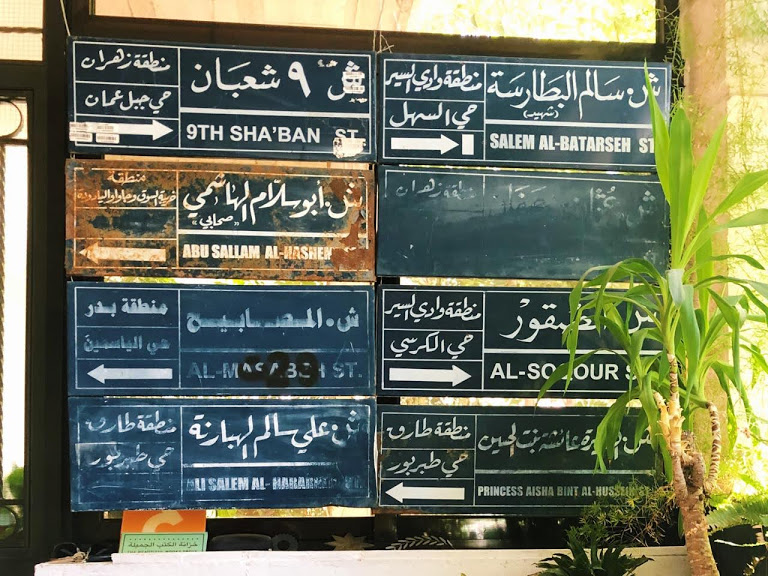 منطقة زهران
حي جبل عمان
ش ٩ شعبان
9TH SHA'BAN ST.
منطقة وادي السير
حي السهل
ش. سالم البطارسة
(شهيد)
SALEM AL-BATARSEH ST
منطقة
خريبة السوق وجاوا واليادودة
ش. أبو سلام الهاشمي
"صحابي"
ABU SALLAM AL-HASHEM
منطقة زهران
ش
منطقة بدر
حي الياسمين
ش. المصابيح
AL-MASABEH ST.
منطقة وادي السير
حي الكرسي
ش الصقور
AL-SOQOUR S
منطقة طارق
حي طبربور
ش علي سالم الهبارنة
ALI SALEM AL-HABARNEH ST.
منطقة طارق
حي طبربور
ش الأميرة عائشة بنت الحسين
PRINCESS AISHA BINT AL-HUSSEIN ST
خزانة الكتب الجميلة